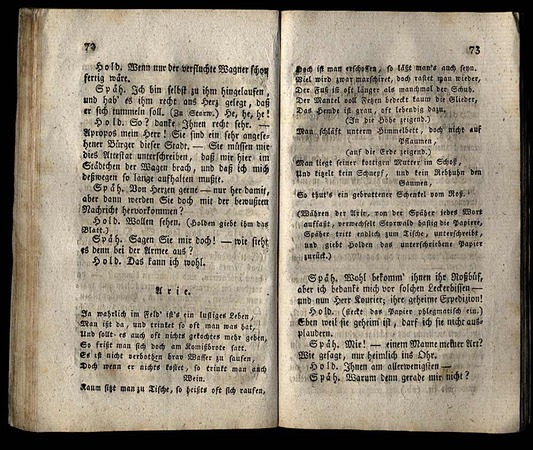 72
Hold. Wenn nur der verfluchte Wagner schon
fertig wäre.
Späh. Ich bin selbst zu ihm hingelaufen,
und hab' es ihm recht ans Herz gelegt, daß
er sich tummeln soll. (Zu Storw.) He, he, he!
Hold. So? danke Ihnen recht sehr. —
Apropos mein Herr! Sie sind ein sehr angese-
hener Bürger dieser Stadt. — Sie müssen mir
dies Attestat unterschreiben, daß mir hier im
Städtchen der Wagen brach, und daß ich mich
deßwegen so lange aufhalten mußte.
Späh. Von Herzen gerne — nur her damit,
aber dann werden Sie doch mit der bewußten
Nachricht hervorkommen?
Hold. Wollen sehen. (Holden giebt ihm das
Blatt.)
Späh. Sagen Sie mir doch! — wie sieht
es denn bei der Armee aus?
Hold. Das kann ich wohl.
Arie.
Ja wahrlich im Feld' ist's ein lustiges Leben,
Man ißt da, und trinket so oft man was hat,
Und sollt' es auch oft nichts gekochtes mehr geben,
So frißt man sich doch am Komißbrote satt.
Es ist nicht verbothen brav Wasser zu saufen,
Doch wenn er nichts kostet, so trinkt man auch
Wein.
Kaum sitzt man zu Tische, so heißts oft sich raufen,
73
Doch ist man erschossen, so läßt man's auch seyn.
Viel wird zwar marschiret, doch rastet man wieder,
Der Fuß ist oft länger als manchmal der Schuh.
Der Mantel voll Fetzen bedeckt kaum die Glieder,
Das Hemde ist grau, oft lebendig dazu.
(In die Höhe zeigend.)
Man schläft unterm Himmelbett, doch nicht auf
Pflaumen,
(auf die Erde zeigend.)
Man liegt seiner kottigen Mutter im Schoß,
Und kitzelt kein Schnepf, und kein Rebhuhn den
Gaumen,
So thut's ein gebrattener Schenkel vom Roß.
(Während der Arie, von der Späher jedes Wort
auffaßt, verwechselt Storwald hastig die Papiere,
Späher tritt endlich zum Tische, unterschreibt,
und giebt Holden das unterschriebene Papier
zurück.)
Späh. Wohl bekomm' ihnen ihr Roßbüf,
aber ich bedanke mich vor solchen Leckerbissen —
und nun Herr Kourier; ihre geheime Expedizion!
Hold. (steckt das Papier phlegmatisch ein.)
Eben weil sie geheim ist, darf ich sie nicht aus-
plaudern.
Späh. Mir! — einem Manne meiner Art?
Wie gesagt, nur heimlich ins Ohr.
Hold. Ihnen am allerwenigsten —
Späh. Warum denn gerade mir nicht?